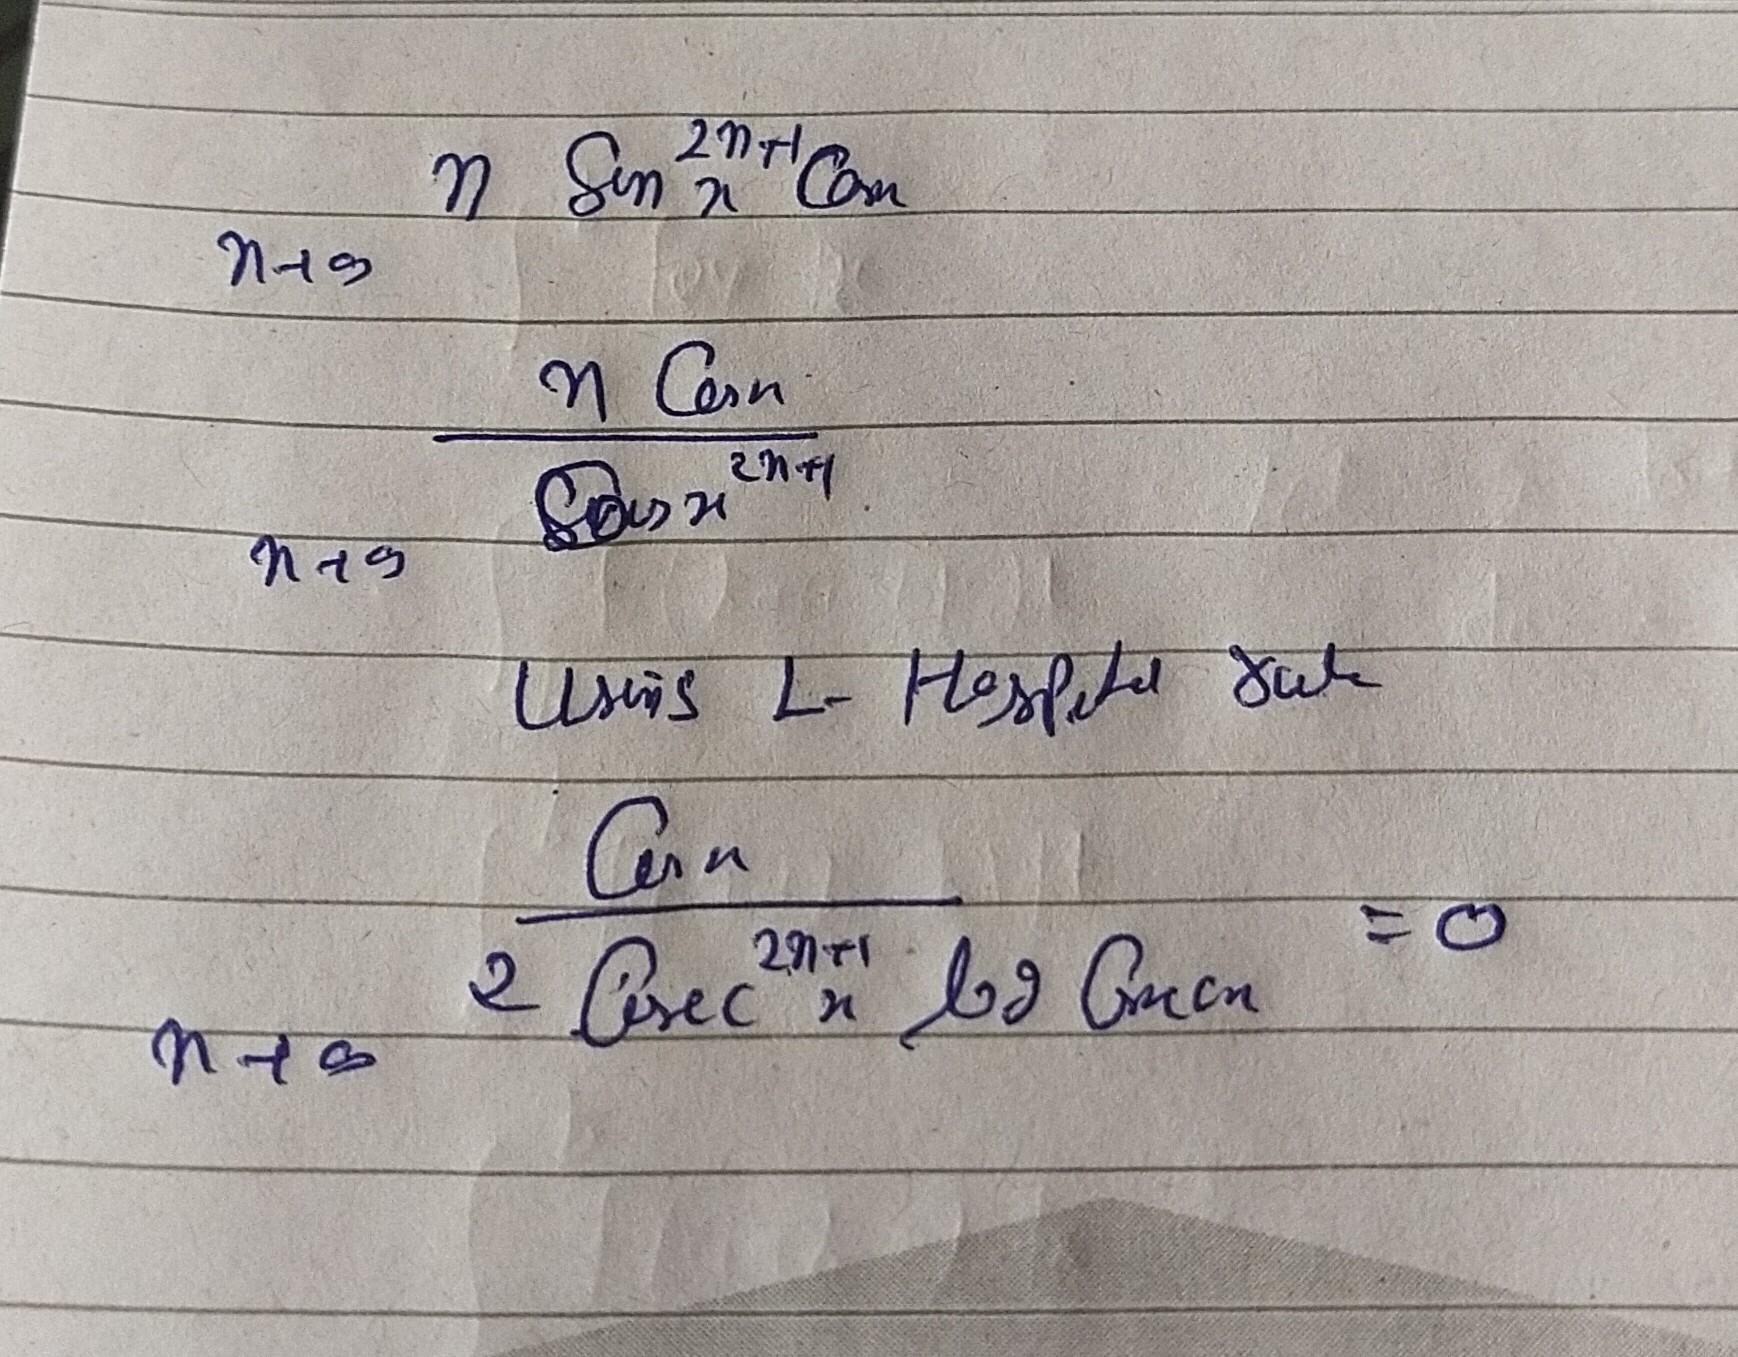 n Sin^{2n+1} x Cosx
n→∞
n Cosx
x^{2n+1}
n→∞
Using L-Hospital rule
Cosx
2 Cosec^{2n+1} x log Cosecx = 0
n→∞